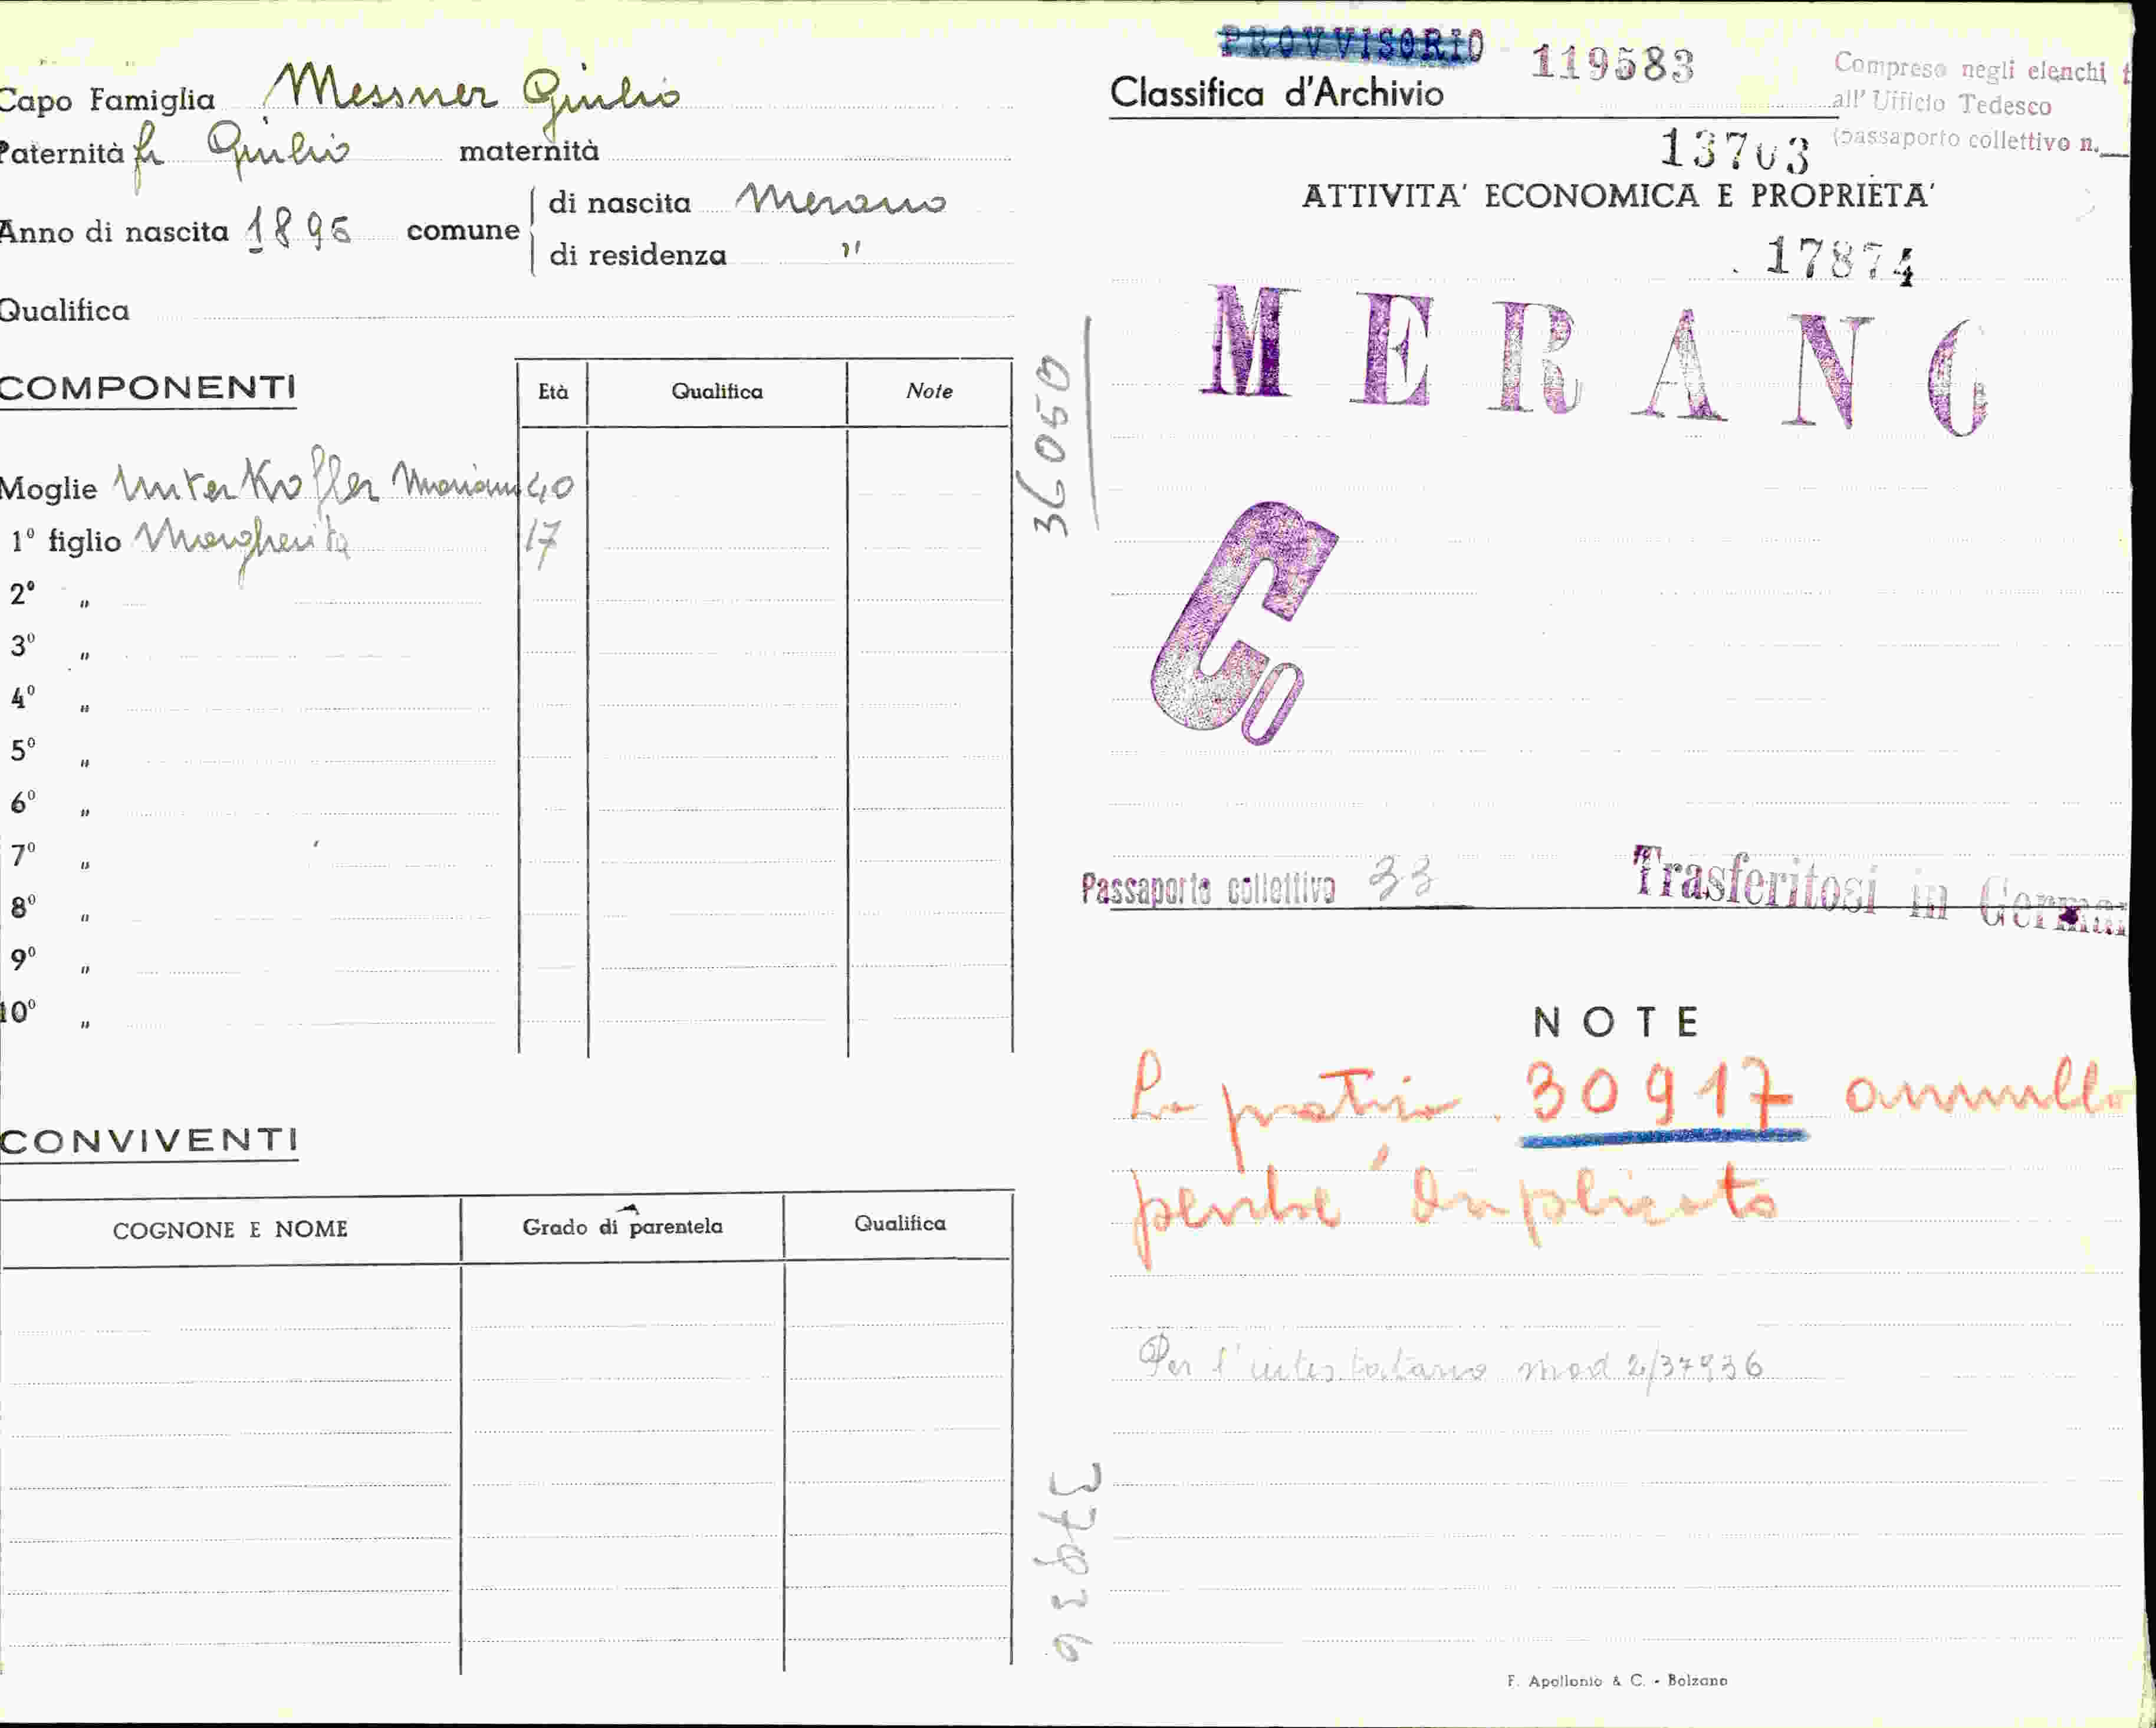 Capo Famiglia Messner Giulio
Paternità fu Giulio maternità
Anno di nascita 1896 comune
di nascita Merano
di residenza "
Qualifica
COMPONENTI Età Qualifica Note
Moglie Unterkofler 40
1º figlio Margherita 17
2º "
3º "
4º "
5º "
6º "
7º "
8º "
9º "
10º "
CONVIVENTI
COGNONE E NOME Grado di parentela Qualifica
36050
37936
PROVVISORIO 119583
Classifica d'Archivio
Compreso negli elenchi
all' Ufficio Tedesco
(passaporto collettivo n.
13703
ATTIVITA' ECONOMICA E PROPRIETA'
17874
MERANO
Co
Passaporto collettivo 33
Trasferitosi in German
NOTE
La pratica 30917 annullo
perché duplicato
Per l'intestatario mod 2/37936
F. Apollonio & C. - Bolzano